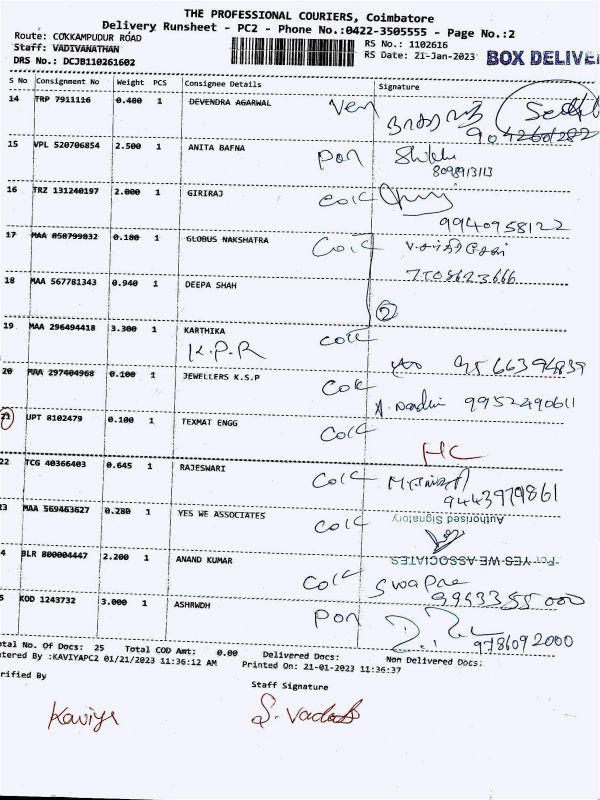 THE PROFESSIONAL COURIERS, Coimbatore
Delivery Runsheet - PC2 - Phone No.:0422-3505555 - Page No.:2
Route: COKKAMPUDUR ROAD
Staff: VADIVANATHAN
RS No.: 1102616
DRS No.: DCJB110261602
RS Date: 21-Jan-2023
BOX DELIVE
S No Consignment No Weight PCS Consignee Details Signature
14 TRP 7911116 0.480 1 DEVENDRA AGARWAL
15 VPL 520706854 2.500 1 ANITA BAFNA
8098913113
16 TRZ 131240197 2.000 1 GIRIRAJ
9940958122
17 MAA 858799832 0.180 1 GLOBUS NAKSHATRA
18 MAA 567781343 0.940 1 DEEPA SHAH
2
19 MAA 296494418 3.300 1 KARTHIKA
K.P.R
9566394839
20 MAA 297404968 0.100 1 JEWELLERS K.S.P
9952490611
21 UPT 8102479 0.100 1 TEXMAT ENGG
HC
22 TCG 40366403 0.645 1 RAJESWARI
9443979861
23 MAA 569463627 0.280 1 YES WE ASSOCIATES
Authorised Signatory
For YES WE ASSOCIATES
4 BLR 800004447 2.200 1 ANAND KUMAR
Swapna
5 KOD 1243732 3.000 1 ASHRWDH
9786092000
otal No. Of Docs: 25 Total COD Amt: 0.00 Delivered Docs: Non Delivered Docs:
ntered By :KAVIYAPC2 01/21/2023 11:36:12 AM Printed On: 21-01-2023 11:36:37
rified By
Staff Signature
Kaviya
S. Vadi